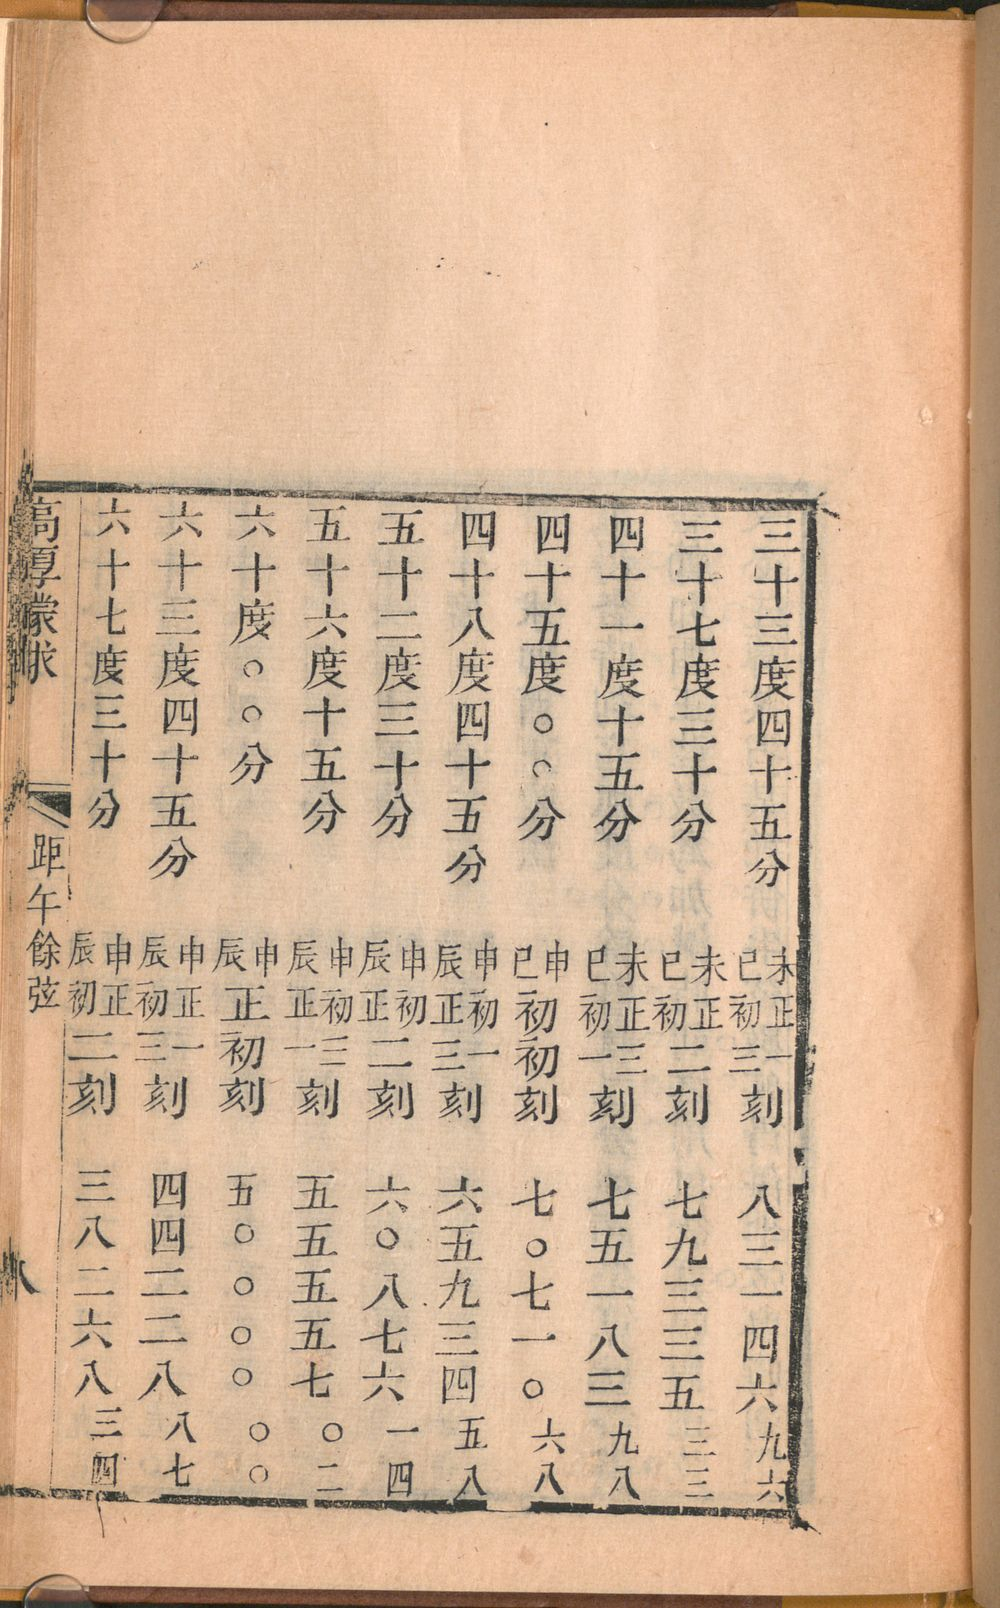 三十三度四十五分 未正一巳初三刻 八三一四六九六
三十七度三十分 未正巳初二刻 七九三三五三三
四十一度十五分 未正三巳初一刻 七五一八三九八
四十五度○○分 申巳初初刻 七○七一○六八
四十八度四十五分 申初一辰正三刻 六五九三四五八
五十二度三十分 申初辰正二刻 六○八七六一四
五十六度十五分 申初三辰正一刻 五五五五七○二
六十度○○分 申辰正初刻 五○○○○○○
六十三度四十五分 申正一辰初三刻 四四二二八八七
六十七度三十分 申正辰初二刻 三八二六八三四
高厚蒙求 距午餘弦 八